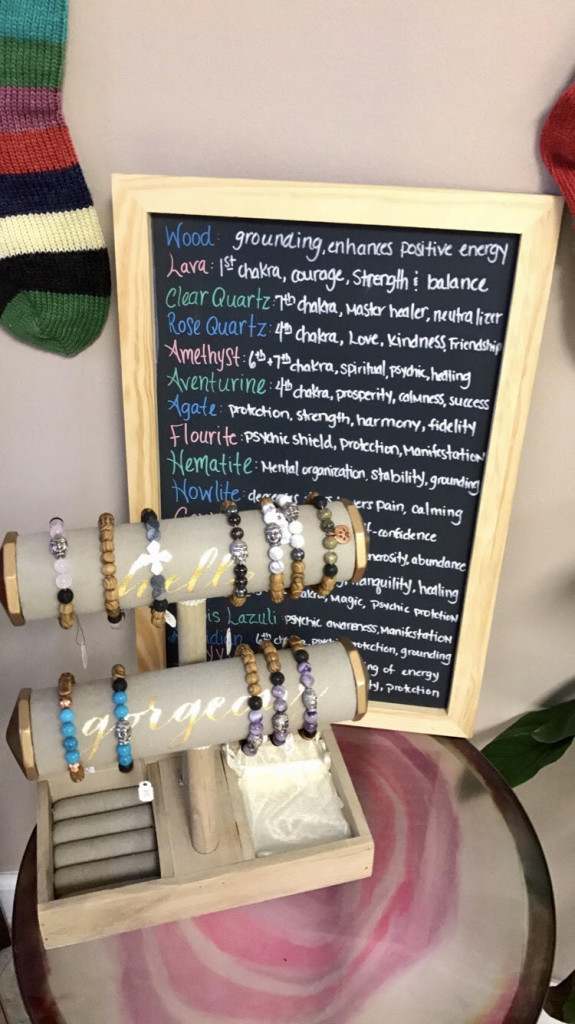 Wood: grounding, enhances positive energy
Lava: 1st chakra, courage, Strength & balance
Clear Quartz: 7th chakra, Master healer, neutralizer
Rose Quartz: 4th chakra, Love, Kindness, Friendship
Amethyst: 6th+7th chakra, spiritual, psychic, healing
Aventurine: 4th chakra, prosperity, calmness, success
Agate: protection, strength, harmony, fidelity
Flourite: psychic shield, Protection, Manifestation
Hematite: Mental organization, Stability, grounding
Howlite: pain, calming
-confidence
abundance
tranquility, healing
Magic, Psychic protection
Lazuli: psychic awareness, Manifestation
protection, grounding
of energy
protection
hello
gorgeous